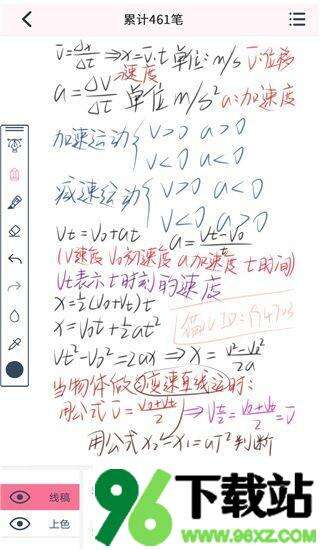 累计461笔
v̄=Δx/Δt ⇒x=v̄·t 单位:m/s v̄:位移
速度
a=ΔV/Δt 单位 m/s² a:加速度
加速运动{V>0 a>0
V<0 a<0
减速运动{V>0 a<0
V<0 a>0
Vt=V₀+at a=(Vt-V₀)/t
(V速度 V₀初速度 a加速度 t时间)
Vt表示t时刻的速度
x=½(V₀+Vt)t
x=V₀t+½at²
Vt²-V₀²=2ax ⇒x=(V²-V₀²)/2a
当物体做匀变速直线运动时:
用公式 v̄=(V₀+Vt)/2 ⇒V t/2=(V₀+Vt)/2=v̄
用公式x₂-x₁=aT²判断
线稿
上色
96下载站
WWW.96XZ.COM